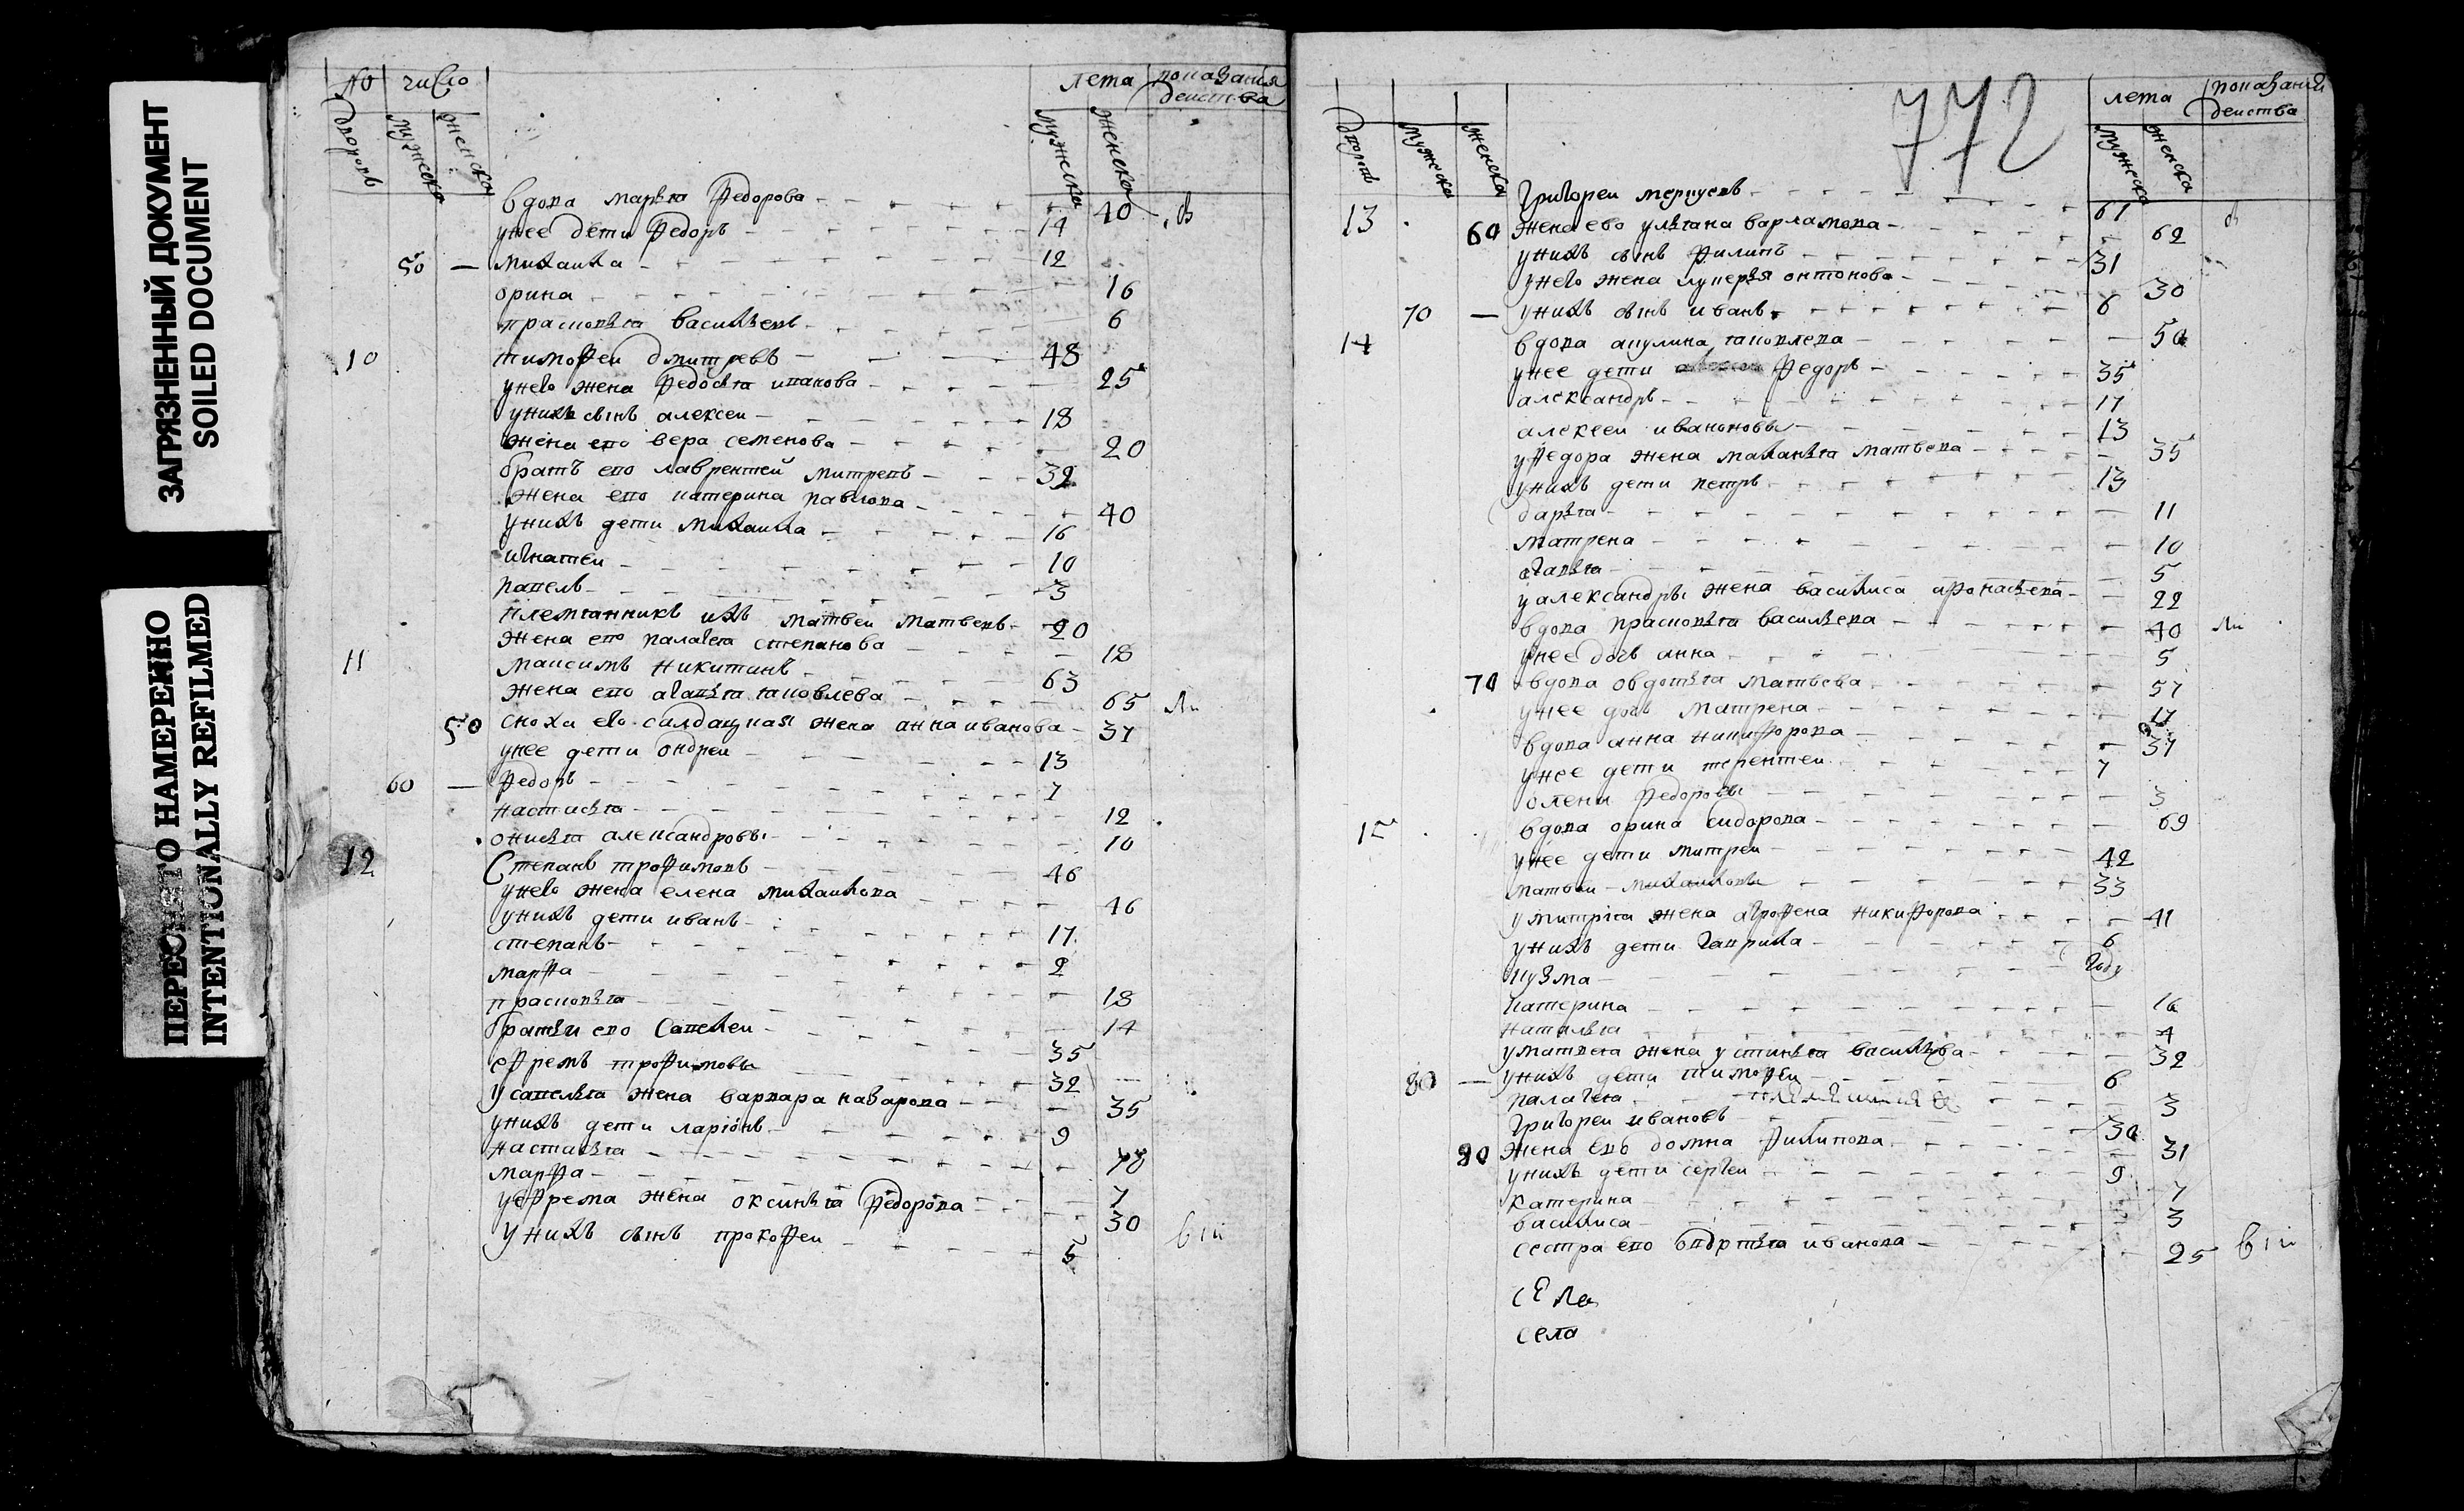 ЗАГРЯЗНЕННЫЙ ДОКУМЕНТ
SOILED DOCUMENT
ПЕРЕСНЯТО НАМЕРЕННО
INTENTIONALLY REFILMED
№ число лета показания
дворовъ мужеска женска мужеска женска действа
вдова марья федорова 40
у нее дети федоръ 14
50 — михаила 12
орина 16
прасковья васильевы 6
10 тимофеи дмитревъ 48
у него жена федосья иванова 25
у нихъ сынъ алексеи 18
жена ево вера семенова 20
братъ ево лаврентей митревъ 32
жена ево катерина павлова 40
у нихъ дети михаила 16
игнатеи 10
павелъ 3
племянникъ ихъ матвеи матвеевъ 20
жена ево палагея степанова 18
11 максимъ никитинъ 63
жена ево агафья яковлева 65
50 сноха его салдацкая жена анна иванова 37
у нее дети ондреи 13
60 — федоръ 7
настасья 12
онисья александровы 10
12 Степанъ трофимовъ 46
у него жена елена михаилова 46
у нихъ дети иванъ 17
степанъ 2
марфа
прасковья 18
братьи ево Савелеи 14
ефремъ трофимовы 35
32
у савелья жена варвара назарова 35
у нихъ дети ларионъ 9
настасья 10
марфа 7
у ефрема жена оксинья федорова 30
у нихъ сынъ прокофеи 5
772
лета показании
дворовъ мужеска женска мужеска женска действа
григореи 61
13 60 жена ево ульяна варламова 62
у нихъ сынъ филипъ 31
у него жена лукерья онтонова 30
70 — у нихъ сынъ иванъ 6
14 вдова акулина яковлева 50
у нее дети федоръ 35
александръ 17
алексеи ивановы 13
у федора жена маланья матвева 35
у нихъ дети петръ 13
дарья 11
матрена 10
агафья 5
у александры жена василиса афонасьева 22
вдова прасковья васильева 40
у нее дочь анна 5
70 вдова овдотья матвеева 57
у нее дочь матрена 17
вдова анна никифорова 37
у нее дети терентеи 7
олена федоровы 3
15 вдова орина сидорова 69
у нее дети митреи 42
матвеи михаиловы 33
у митрия жена агрофена никифорова 41
у нихъ дети гаврила 6
кузма году
катерина 16
наталья 4
у матвея жена устинья васильева 32
80 — у нихъ дети тимофеи 6
палагея 3
григореи ивановъ 30
80 жена ево домна филипова 31
у нихъ дети сергеи 9
катерина 7
василиса 3
сестра ево иванова 25
села
села